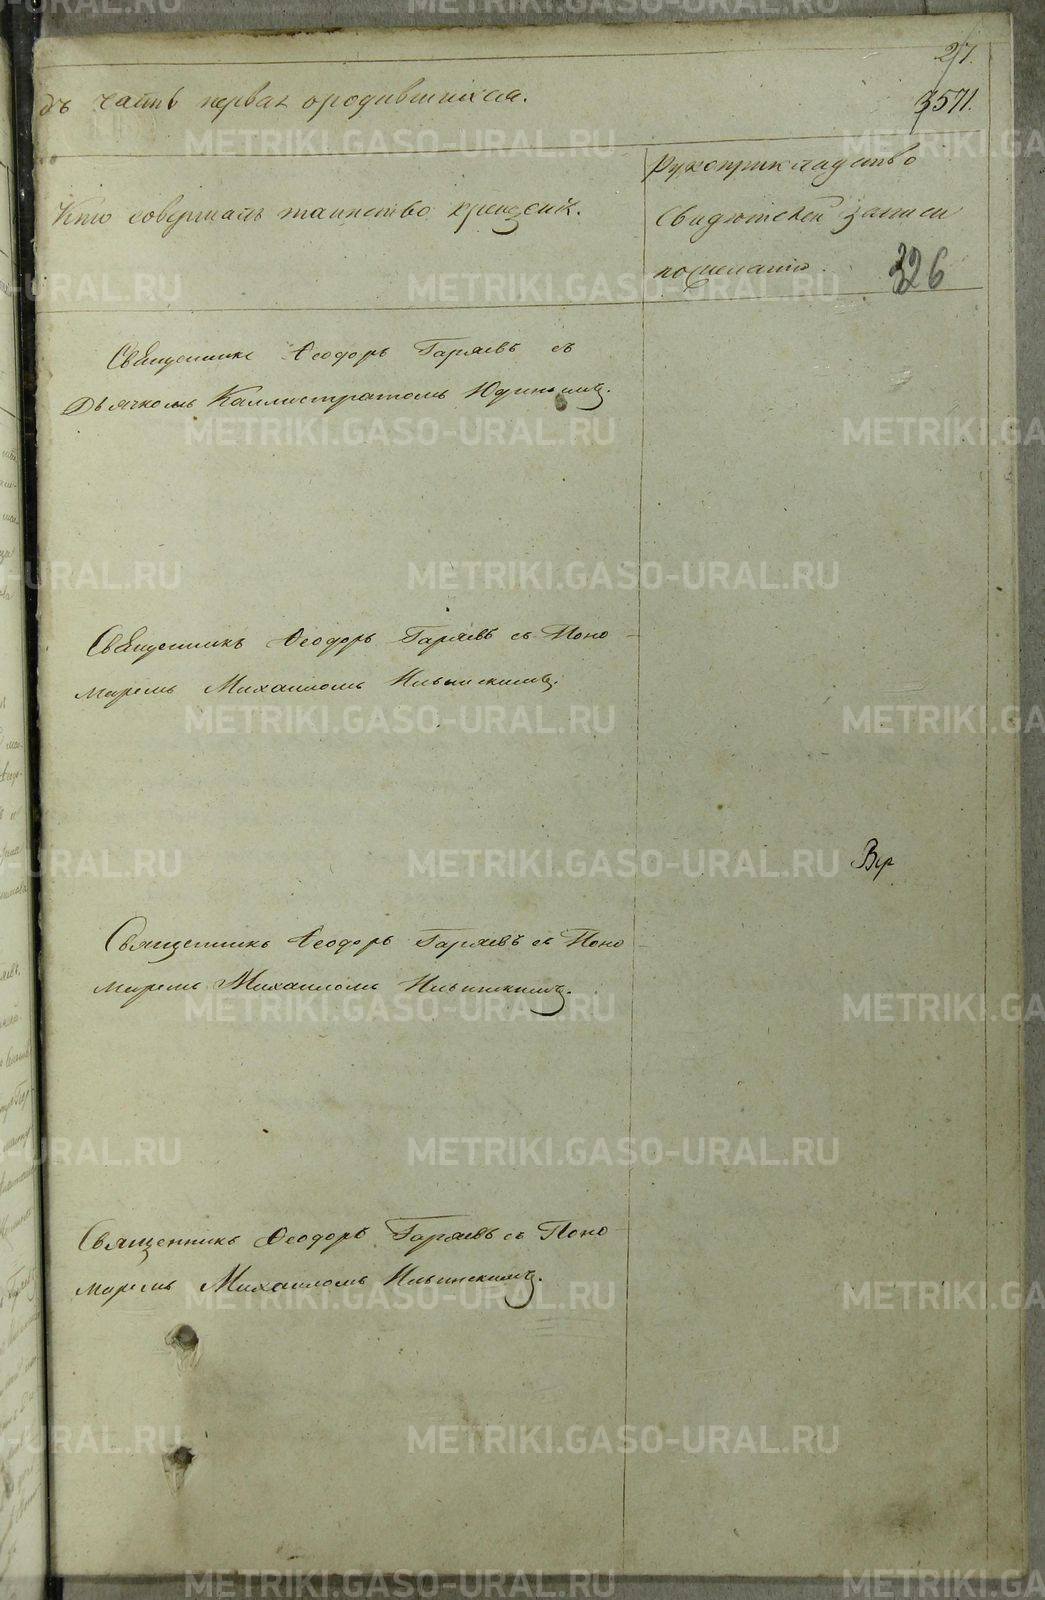 27.
дъ часть первая ородившихся.
3571.
Кто совершалъ таинство крещенія.
Рукоприкладство
Свидѣтелей записи
пожеланію.
326
Священникъ Ѳеодоръ Гаряевъ съ
Дьячкомъ Каллистратомъ Юдинымъ.
Священникъ Ѳеодоръ Гаряевъ съ Поно
маремъ Михаиломъ Ильинскимъ.
Вѣр
Священникъ Ѳеодоръ Гаряевъ съ Поно
маремъ Михаиломъ Ильинскимъ.
Священникъ Ѳеодоръ Гаряевъ съ Поно
маремъ Михаиломъ Ильинскимъ.
METRIKI.GASO-URAL.RU